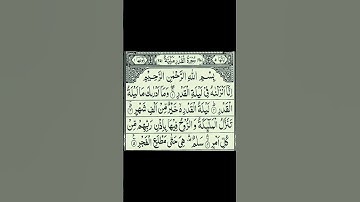 سُوْرَةُ الْقَدْرِ مَكِّيَّةٌ
بِسْمِ اللّٰهِ الرَّحْمٰنِ الرَّحِيْمِ
اِنَّاۤ اَنْزَلْنٰهُ فِیْ لَیْلَةِ الْقَدْرِ ۚ وَمَاۤ اَدْرٰىكَ مَا لَیْلَةُ
الْقَدْرِ ؕ لَیْلَةُ الْقَدْرِ خَیْرٌ مِّنْ اَلْفِ شَهْرٍ ؔ
تَنَزَّلُ الْمَلٰٓىِٕكَةُ وَالرُّوْحُ فِیْهَا بِاِذْنِ رَبِّهِمْ مِّنْ
كُلِّ اَمْرٍ ۙ سَلٰمٌ ۛ هِیَ حَتّٰی مَطْلَعِ الْفَجْرِ